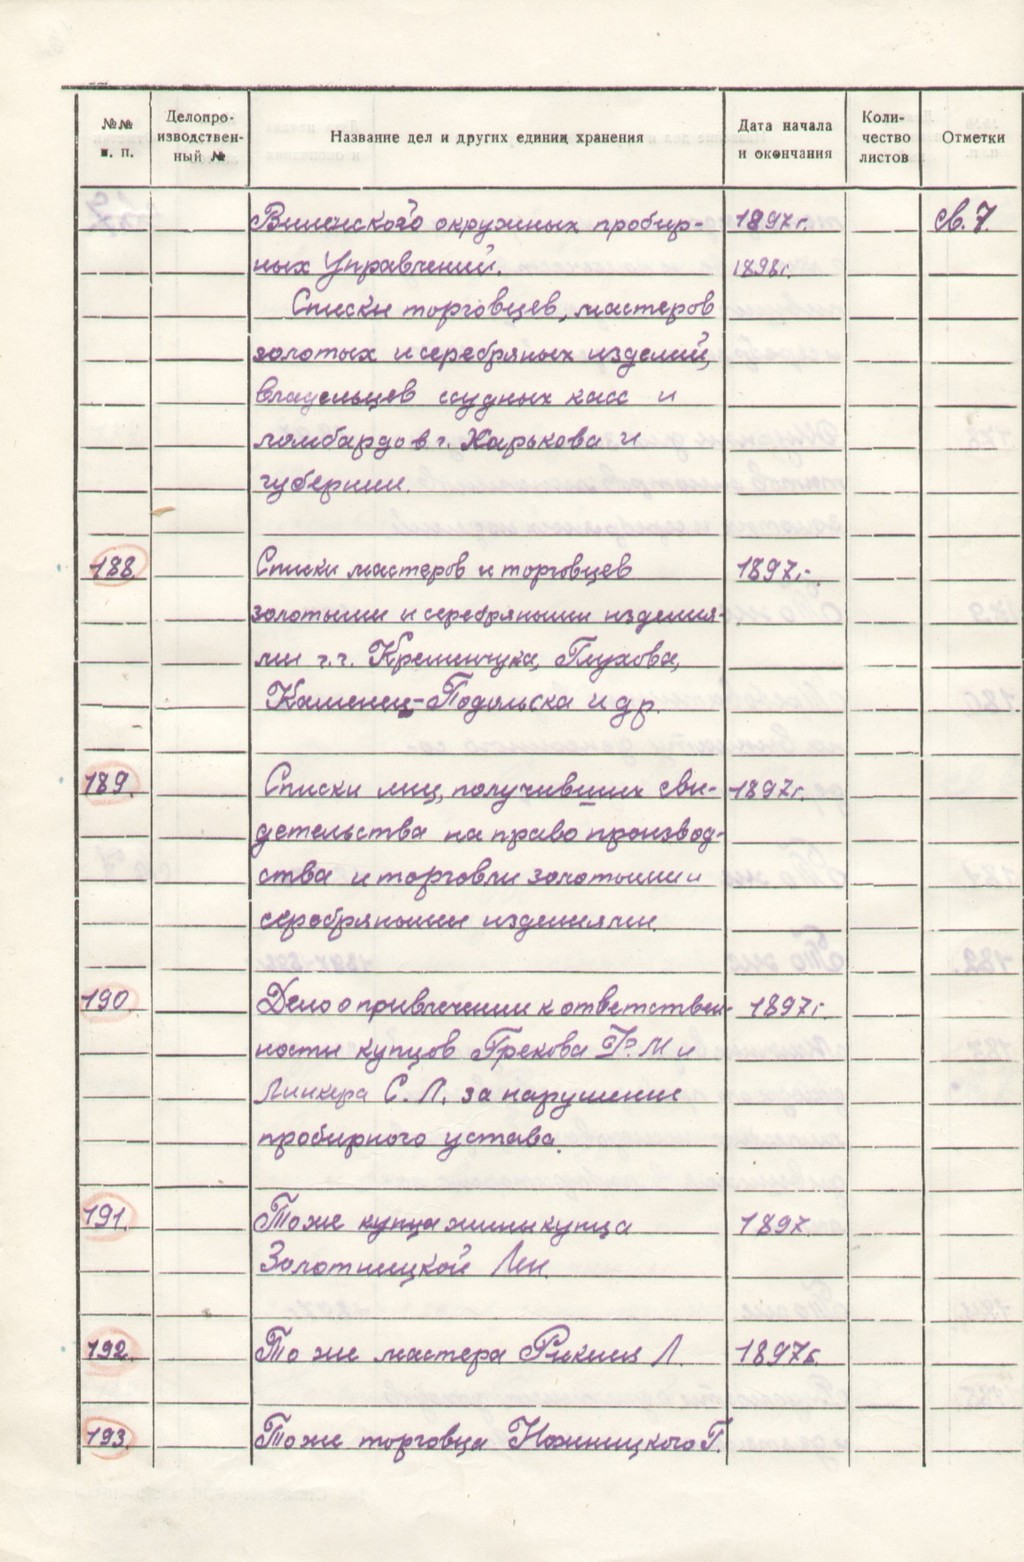 №№ п. п.
Делопро-изводствен-ный №
Название дел и других единиц хранения
Дата начала и окончания
Коли-чество листов
Отметки
Виленского окружных пробир- 1897г. св. 7.
ных Управлений. 1898г.
Списки торговцев, мастеров
золотых и серебряных изделий,
владельцев ссудных касс и
ломбардов в г. Харькова и
губернии.
188. Списки мастеров и торговцев 1897г.
золотыми и серебряными изделия-
ми г.г. Кременчука, Глухова,
Каменец-Подольска и др.
189. Списки лиц, получивших сви- 1897г.
детельства на право производ-
ства и торговли золотыми и
серебряными изделиями.
190. Дело о привлечении к ответствен- 1897г.
ности купцов Грекова Ф. М и
Линкера С. Л. за нарушение
пробирного устава.
191. То же купца 1897.
Золотницкой
192. То же мастера Рикмия Л. 1897г.
193. То же торговца Ножницкого П.